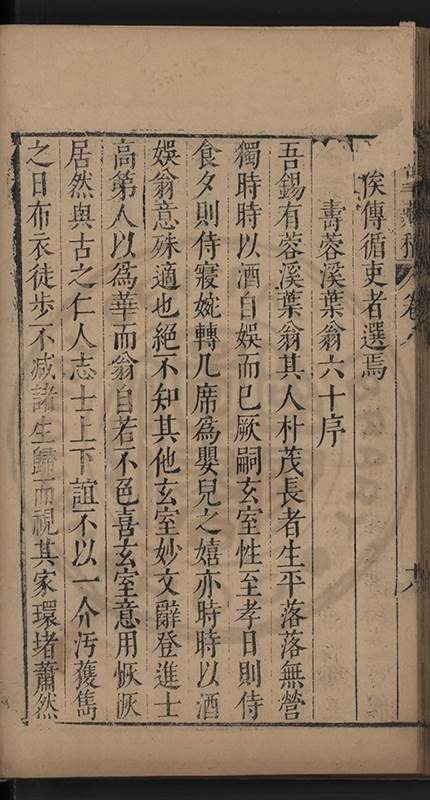 俟傳循吏者選焉
壽蓉溪葉翁六十序
吾錫有蓉溪葉翁其人朴茂長者生平落落無營
獨時時以酒自娛而已厥嗣玄室性至孝日則侍
食夕則侍寢婉轉几席為嬰兒之嬉亦時時以酒
娛翁意殊適也絕不知其他玄室妙文辭登進士
高第人以為華而翁自若不色喜玄室意用恢恢
居然與古之仁人志士上下誼不以一介汚獲雋
之日布衣徒步不減諸生歸而視其家環堵蕭然